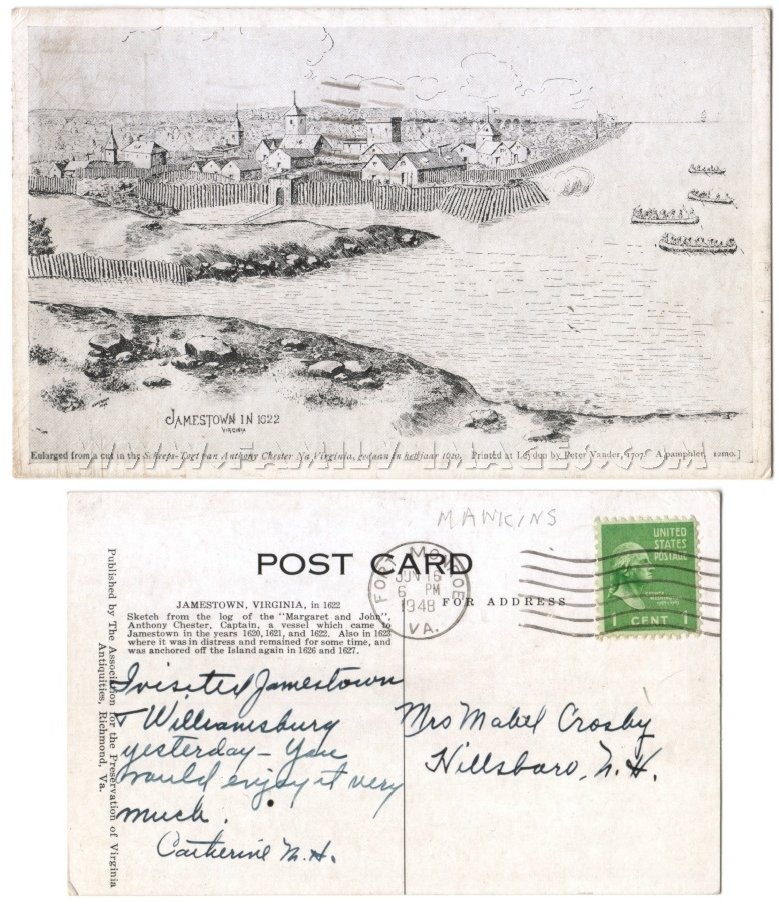 JAMESTOWN IN 1622
VIRGINIA
Enlarged from a cut in the Scheeps-Togt van Anthony Chester Na Virginia, gedaan in het jaar 1620. Printed at Leyden by Peter Vander, 1707. A pamphlet, 12mo.]
WWW.FAMILY-IMAGES.COM
MAWKINS
POST CARD
UNITED
STATES
POSTAGE
1 CENT 1
FORT MONROE
JUN 16
6 PM
1948
VA.
FOR ADDRESS
JAMESTOWN, VIRGINIA, in 1622
Sketch from the log of the "Margaret and John",
Anthony Chester, Captain, a vessel which came to
Jamestown in the years 1620, 1621, and 1622. Also in 1623
where it was in distress and remained for some time, and
was anchored off the Island again in 1626 and 1627.
Published by The Association for the Preservation of Virginia
Antiquities, Richmond, Va.
I visited Jamestown
& Williamsburg
yesterday - You
would enjoy it very
much.
Catherine M.H.
Mrs Mabel Crosby
Hillsboro, N.H.